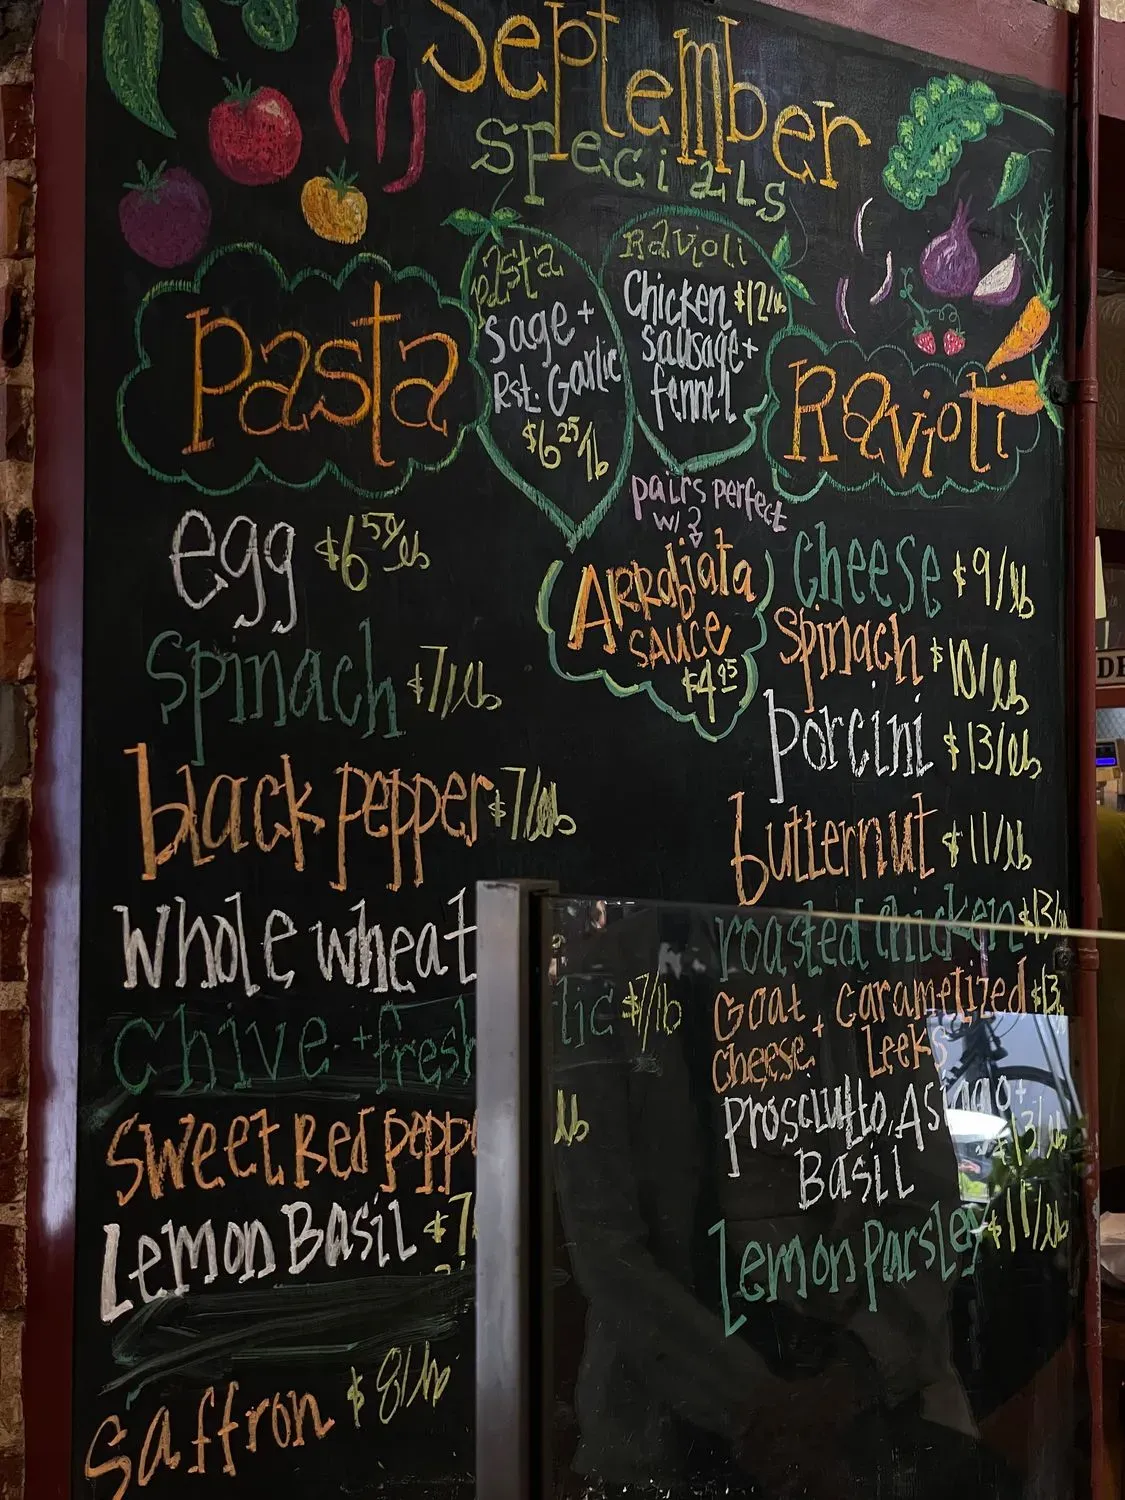 September
specials
Pasta
Sage +
Rst. Garlic
$6.25/lb
Ravioli
Chicken $12/lb
sausage +
fennel
pairs perfect
w/
Arrabiata
sauce
$4.95
Pasta
egg $6.50/lb
Spinach $7/lb
black pepper $7/lb
whole wheat
Chive + fresh lic $7/lb
Sweet Red pepp lb
Lemon Basil $7
Saffron $8/lb
Ravioli
Cheese $9/lb
Spinach $10/lb
porcini $13/lb
butternut $11/lb
roasted chicken $13/
Goat + caramelized $13
cheese + Leeks
Prosciutto, Asiago +
Basil $13/lb
Lemon Parsley $11/lb